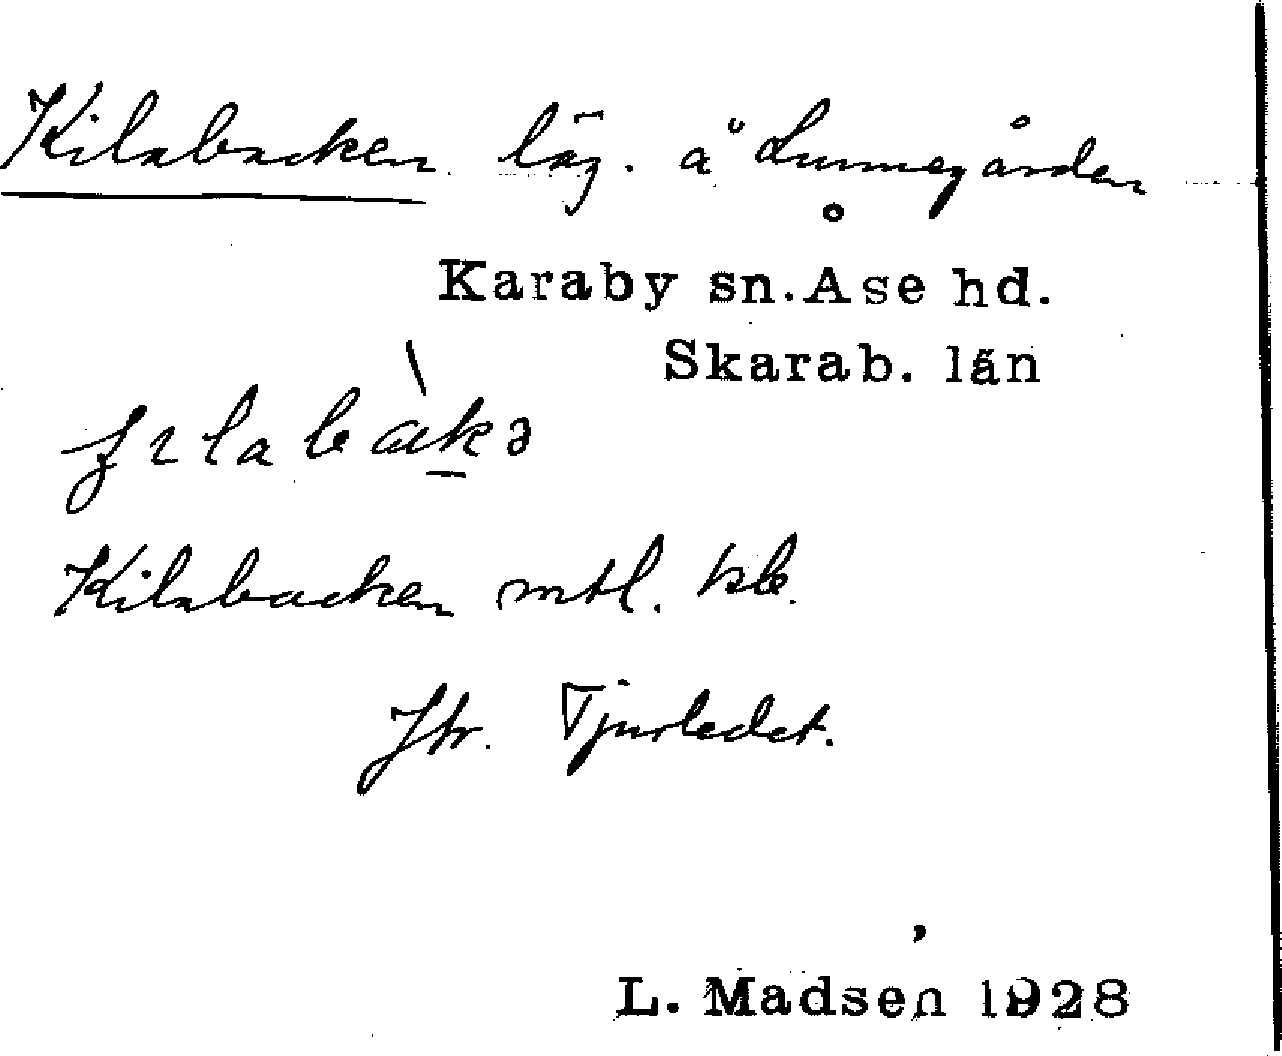 Kilabacken läg. å Lunnegården
Karaby sn. Åse hd.
Skarab. län
Kilabacken mtl.
Jfr. Tjurledet.
L. Madsen 1928